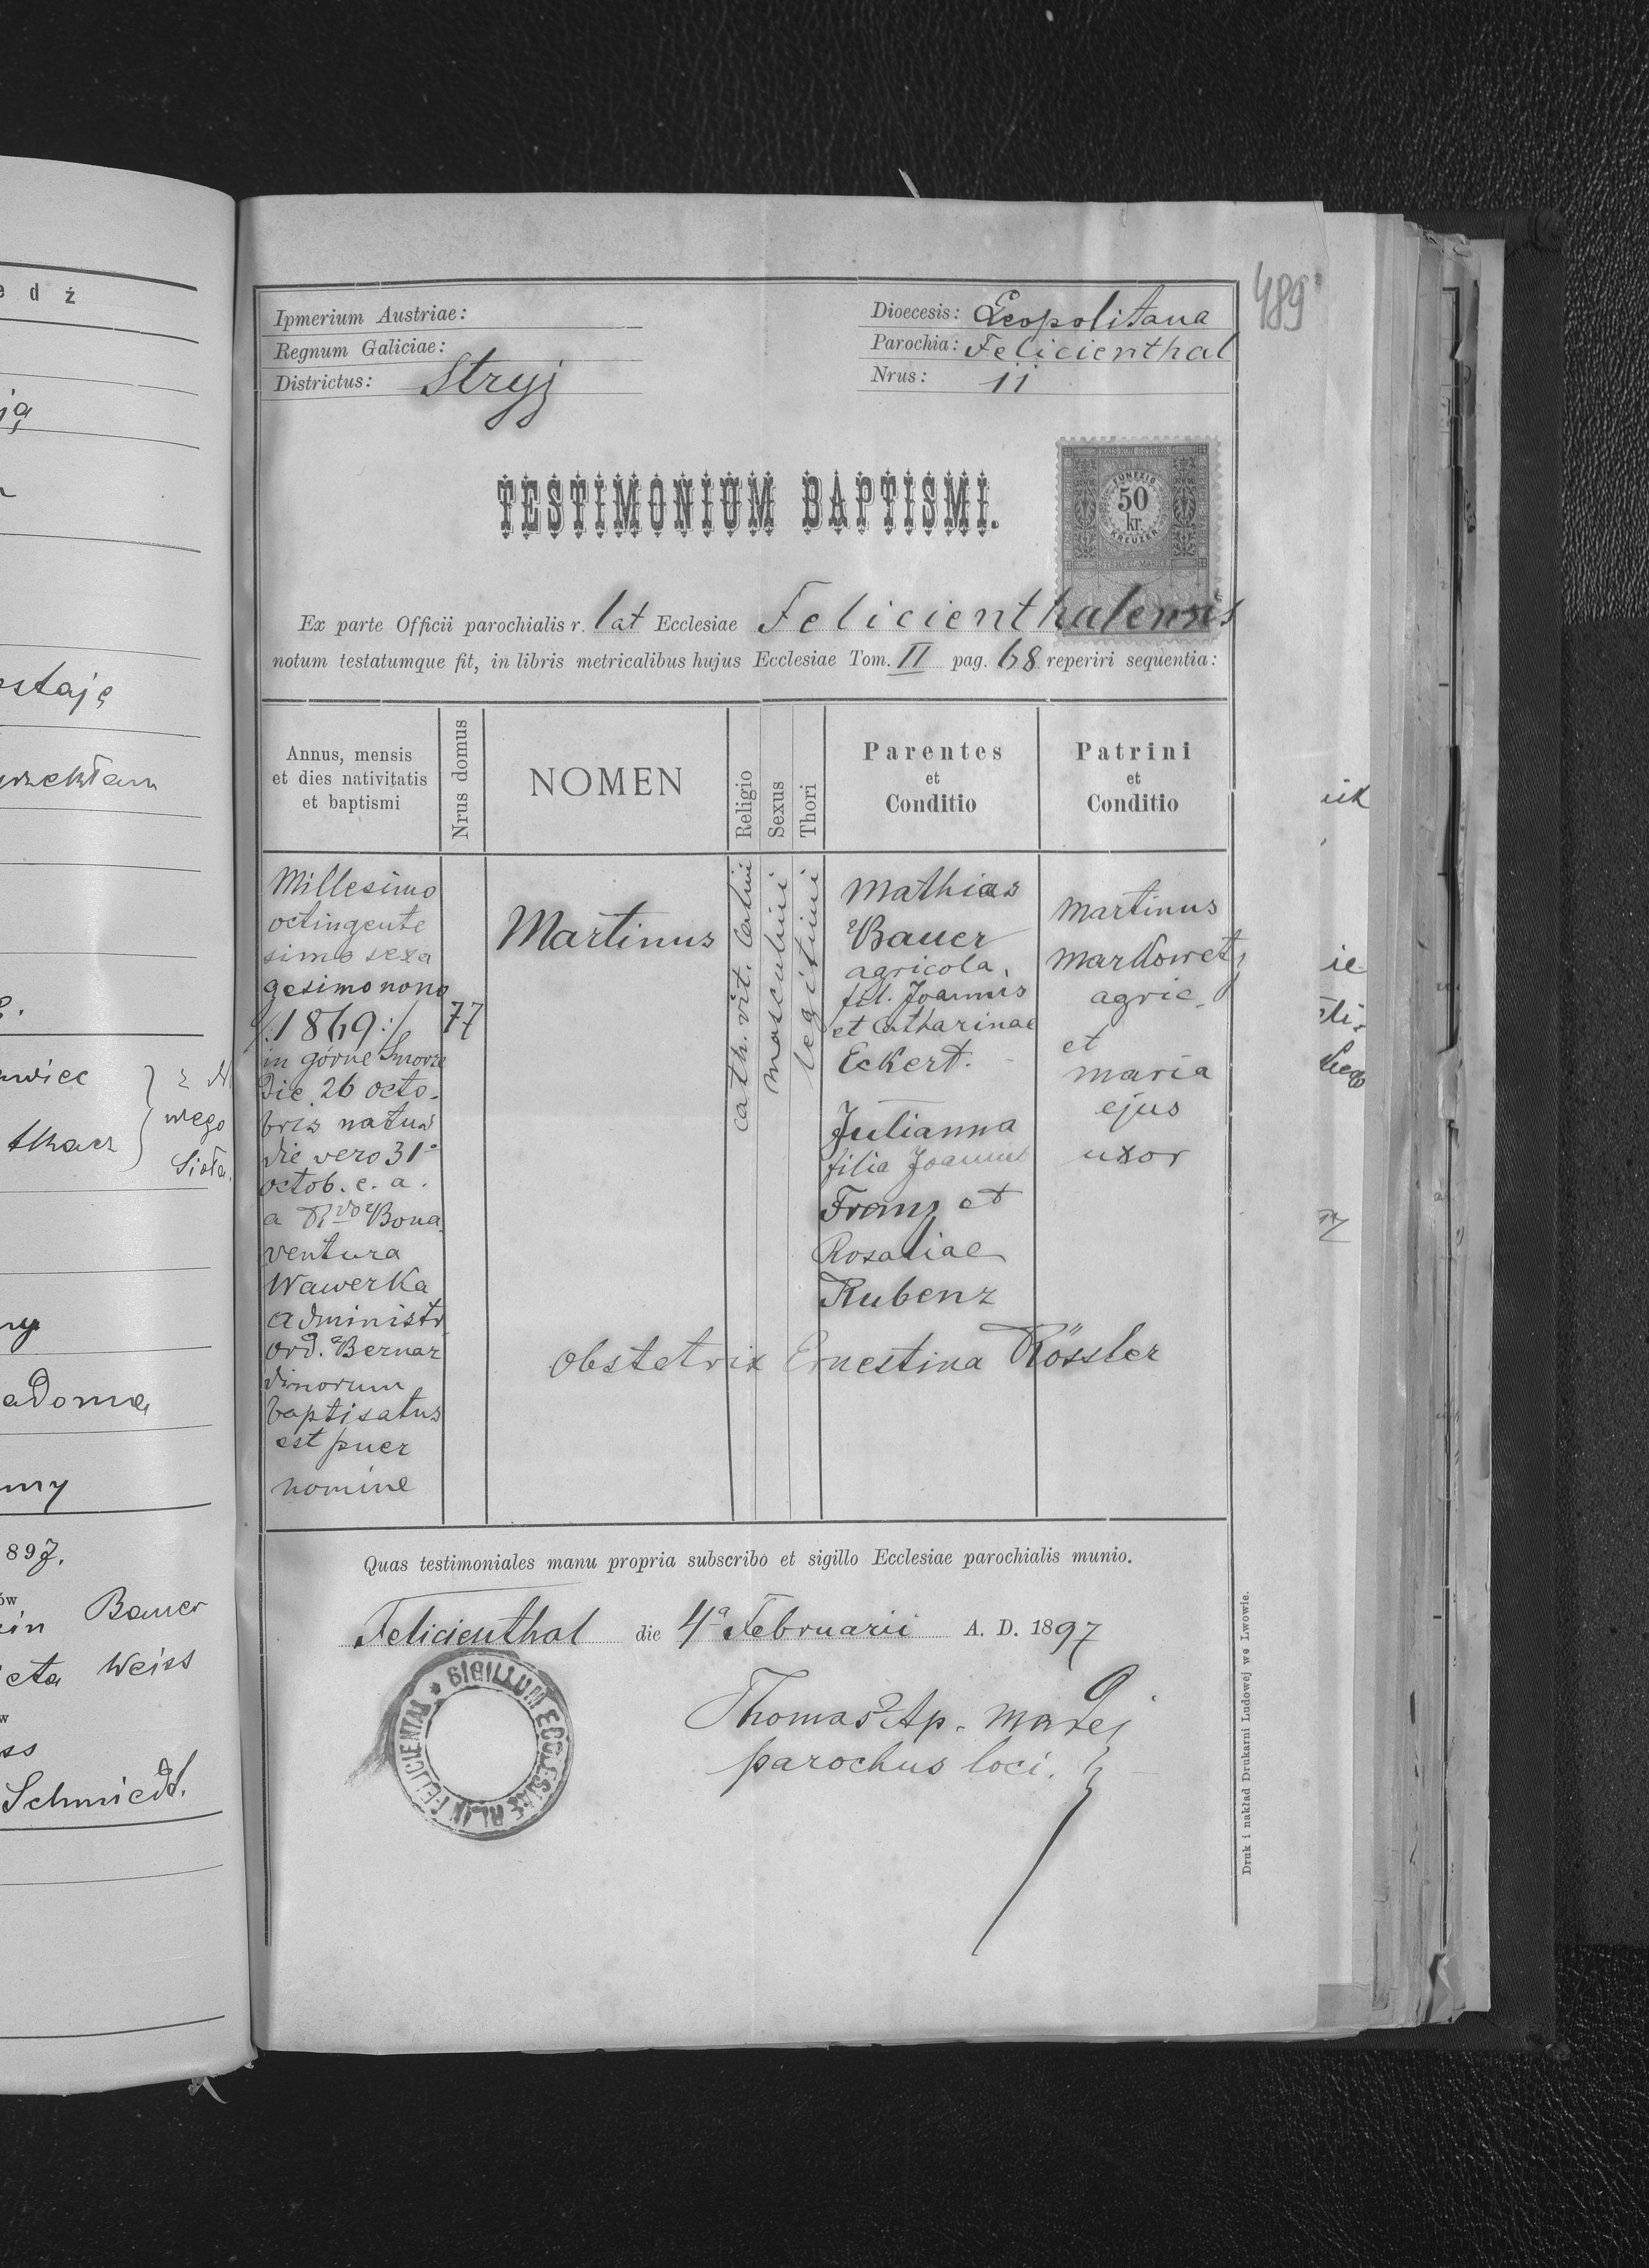 e d ź
ią
ostaję
wiec
tkacz
wego
Sioła.
adoma
897.
Bauer
eta Weiss
Schmiedt.
489
Ipmerium Austriae:
Regnum Galiciae:
Districtus: Stryj
Dioecesis: Leopolitana
Parochia: Felicienthal
Nrus: 11
TESTIMONIUM BAPTISMI.
FÜNFZIG
50
kr.
KREUZER
STEMPEL-MARKE
Ex parte Officii parochialis r. lat Ecclesiae Felicienthalensis
notum testatumque fit, in libris metricalibus hujus Ecclesiae Tom. II pag. 68 reperiri sequentia:
Annus, mensis
et dies nativitatis
et baptismi
Nrus domus
NOMEN
Religio
Sexus
Thori
Parentes
et
Conditio
Patrini
et
Conditio
Millesimo
octingente
simo sexa
gesimo nono
/:1869:/
in górne Smorze
Die 26 octo-
bris natus
die vero 31a
octob. e. a.
a Rvdo Bona
ventura
Wawerka
administr.
ord. Bernar
dinorum
baptisatus
est puer
nomine
77
Martinus
cath. rit. latini
masculini
legitimi
Mathias
Bauer
agricola,
fil. Joannis
et Catharinae
Eckert.
Julianna
filia Joannis
Franz et
Rosaliae
Rubenz
Martinus
Markowetz
agric.
et
maria
ejus
uxor
Obstetrix Ernestina Rössler
Quas testimoniales manu propria subscribo et sigillo Ecclesiae parochialis munio.
Felicienthal die 4a Februarii A. D. 1897
Thomas Ap. Madej
parochus loci.
SIGILLUM ECCLESIAE R.L. IN FELICIENTAL
Druk i nakład Drukarni Ludowej we Lwowie.